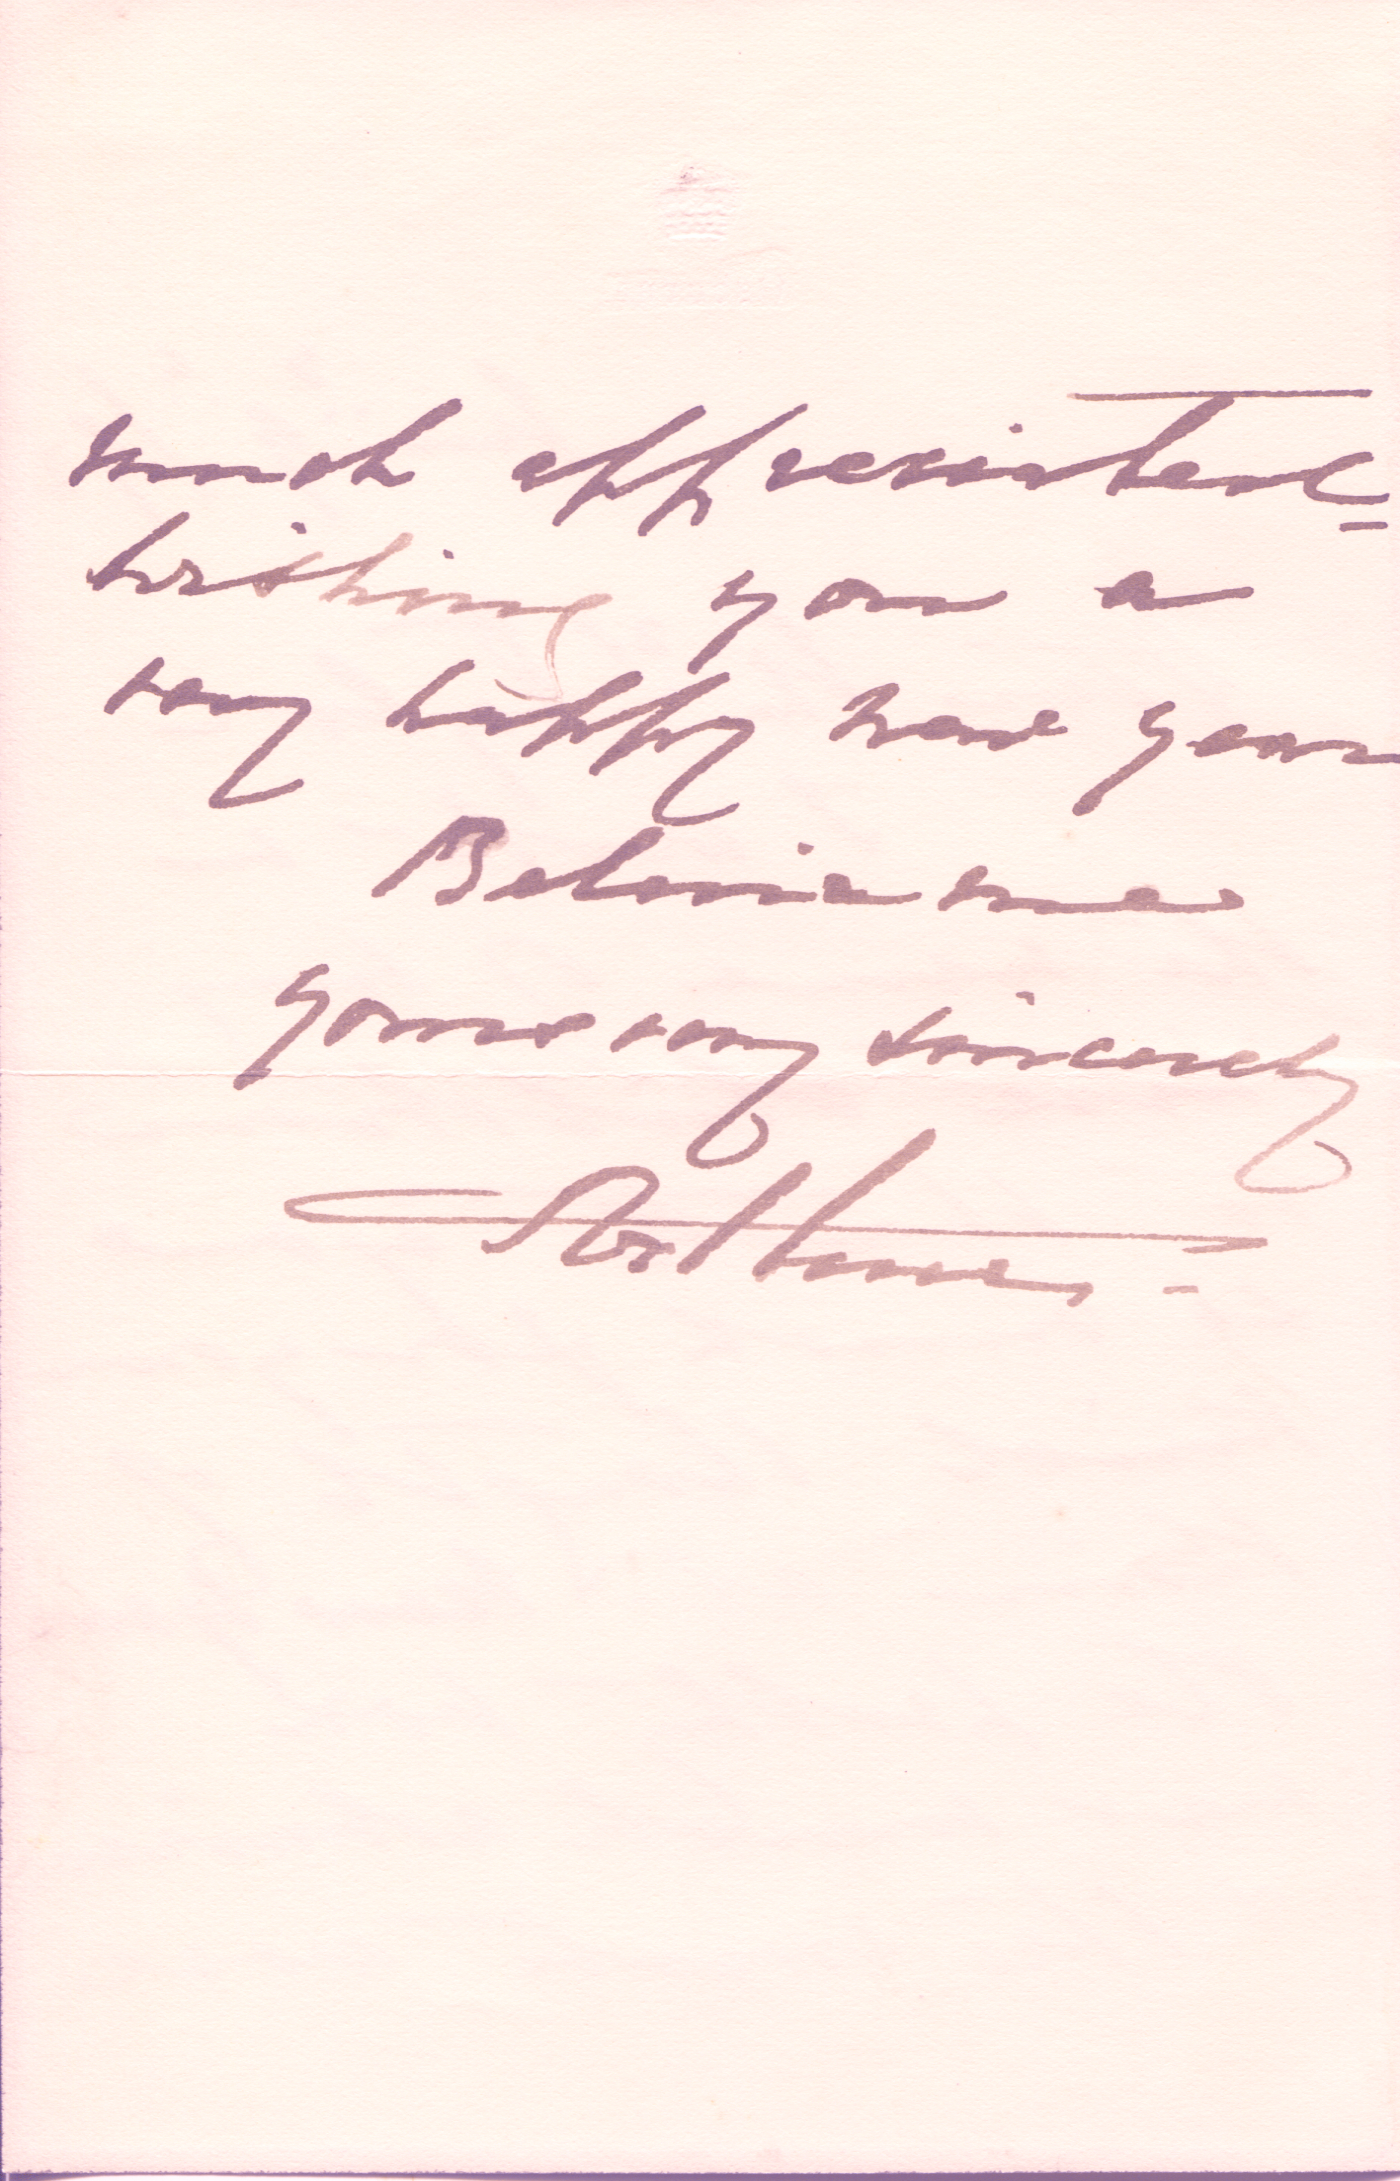 much appreciated
wishing you a
very happy new year
Believe me
yours very sincerely